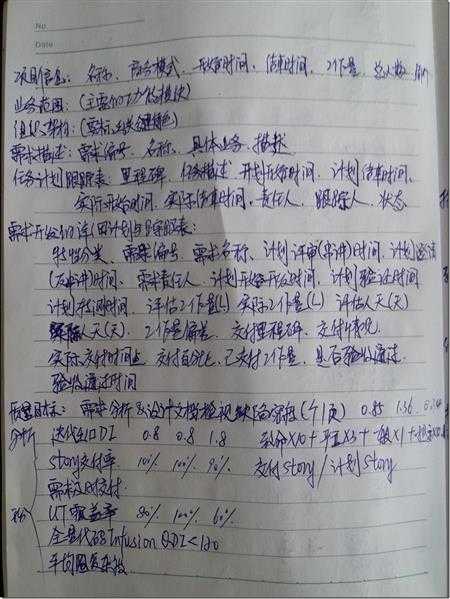 No
Date
项目信息: 名称、商务模式、开始时间、结束时间、工作量、总人数
业务范围: (主要的功能模块)
组织架构: (需标
需求描述: 需求编号、名称、具体业务、描述
任务计划跟踪表: 里程碑、任务描述、计划开始时间、计划结束时间、
实际开始时间、实际结束时间、责任人、跟踪人、状态
需求开发的详细计划与跟踪表:
特性分类、需求编号、需求名称、计划评审(串讲)时间、计划
(反串讲)时间、需求责任人、计划开始开发时间、计划验证时间
计划转测时间、评估工作量(L) 实际工作量(L) 评估人天(天)
实际人天(天)、工作量偏差、交付里程碑、交付情况、
实际交付时间、交付百分比、已交付工作量、是否验收通过、
验收通过时间
质量目标: 需求分析&设计文档检视缺陷密度(个/页) 0.85 1.36
分析 迭代出口DI 0.8 0.8 1.8 致命X10+严重X3+一般X1+提示X0.1
Story交付率 100% 100% 90% 交付Story/计划Story
需求及时交付
UT覆盖率 80% 100% 60%
全量代码Infusion QDI<120
平均圈复杂度